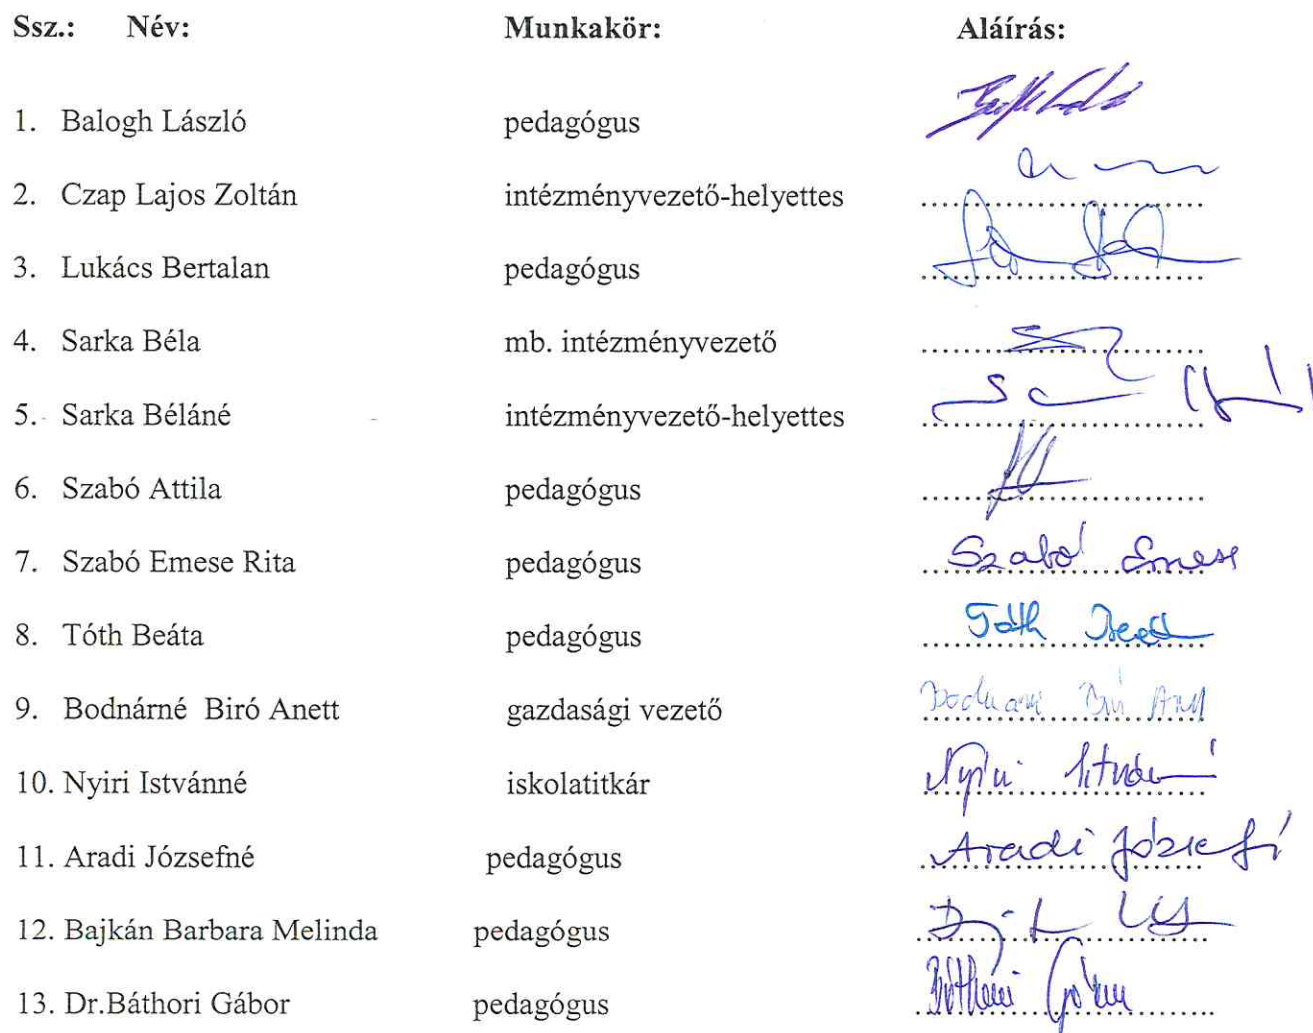 Ssz.: Név: Munkakör: Aláírás:
1. Balogh László pedagógus
2. Czap Lajos Zoltán intézményvezető-helyettes
3. Lukács Bertalan pedagógus
4. Sarka Béla mb. intézményvezető
5. Sarka Béláné intézményvezető-helyettes
6. Szabó Attila pedagógus
7. Szabó Emese Rita pedagógus Szabó Emese
8. Tóth Beáta pedagógus Tóth Beáta
9. Bodnárné Biró Anett gazdasági vezető
10. Nyiri Istvánné iskolatitkár Nyiri
11. Aradi Józsefné pedagógus Aradi Józsefné
12. Bajkán Barbara Melinda pedagógus
13. Dr.Báthori Gábor pedagógus Báthori Gábor